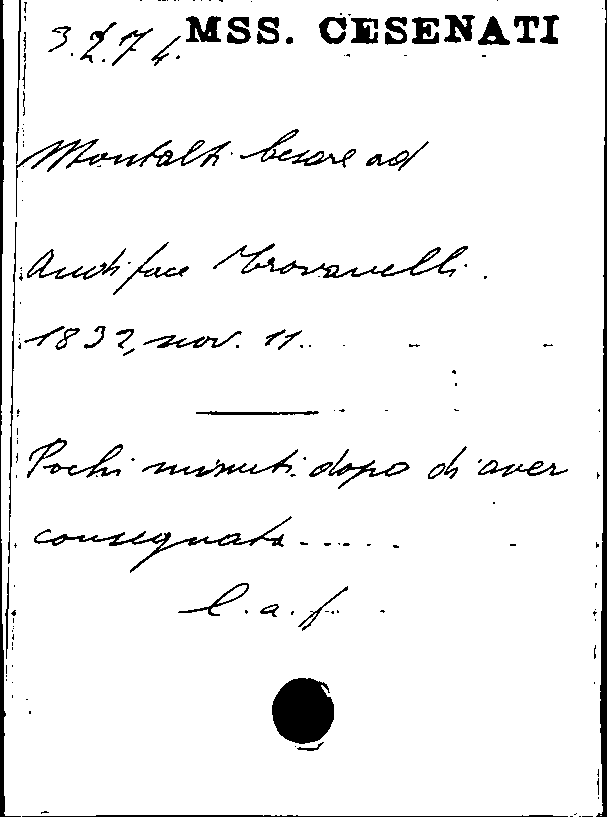 3.2.7 4. MSS. CESENATI
Montalti Cesare ad
Audiface Trovanelli.
1832, nov. 11.
Pochi minuti dopo di aver
consegnata.....
l. a. f.